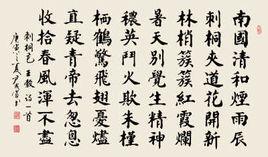 南國清和煙雨辰
刺桐夾道花開新
林梢簇簇紅霞爛
暑天別覺生精神
穠英鬥火欺朱槿
栖鶴驚飛翅憂燼
直疑青帝去怱怱
收拾春風渾不盡
刺桐花 王轂詩一首
庚寅之夏